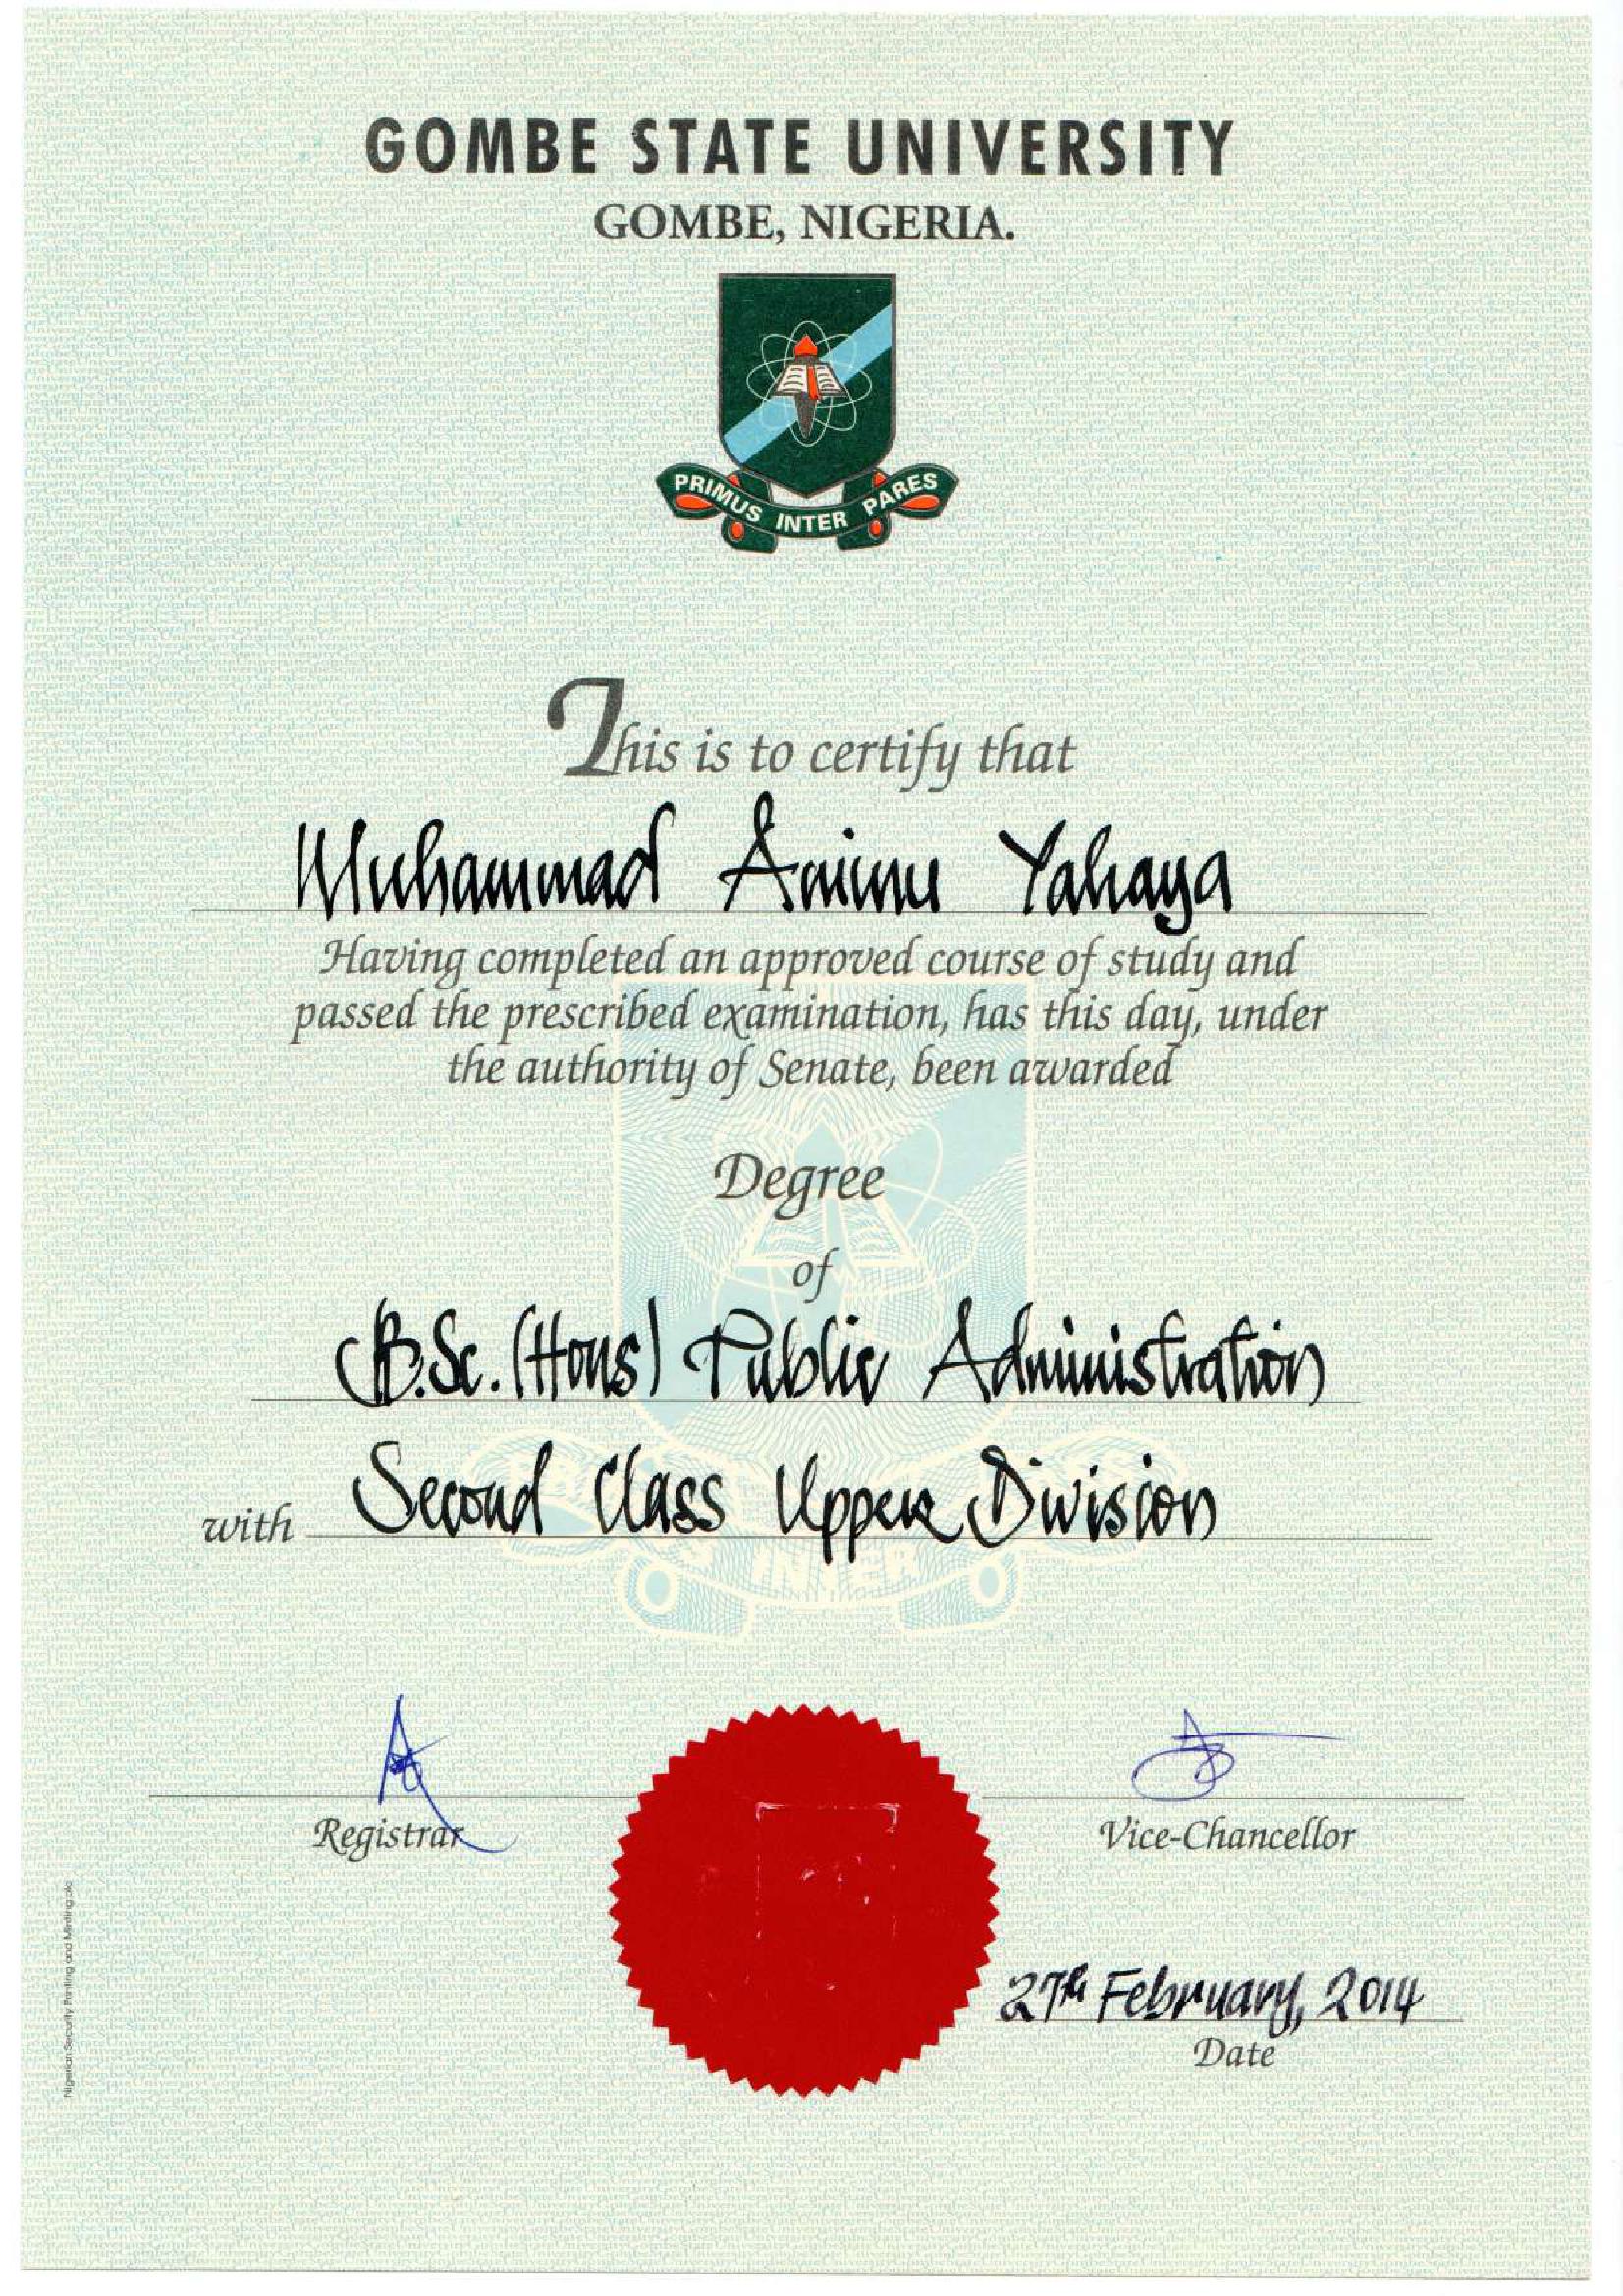 GOMBE STATE UNIVERSITY
GOMBE, NIGERIA.
PRIMUS INTER PARES
This is to certify that
Muhammad Aminu Yahaya
Having completed an approved course of study and
passed the prescribed examination, has this day, under
the authority of Senate, been awarded
Degree
of
B.Sc. (Hons) Public Administration
with Second Class Upper Division
INTER
Registrar
Vice-Chancellor
27th February, 2014
Date
Nigerian Security Printing and Minting plc